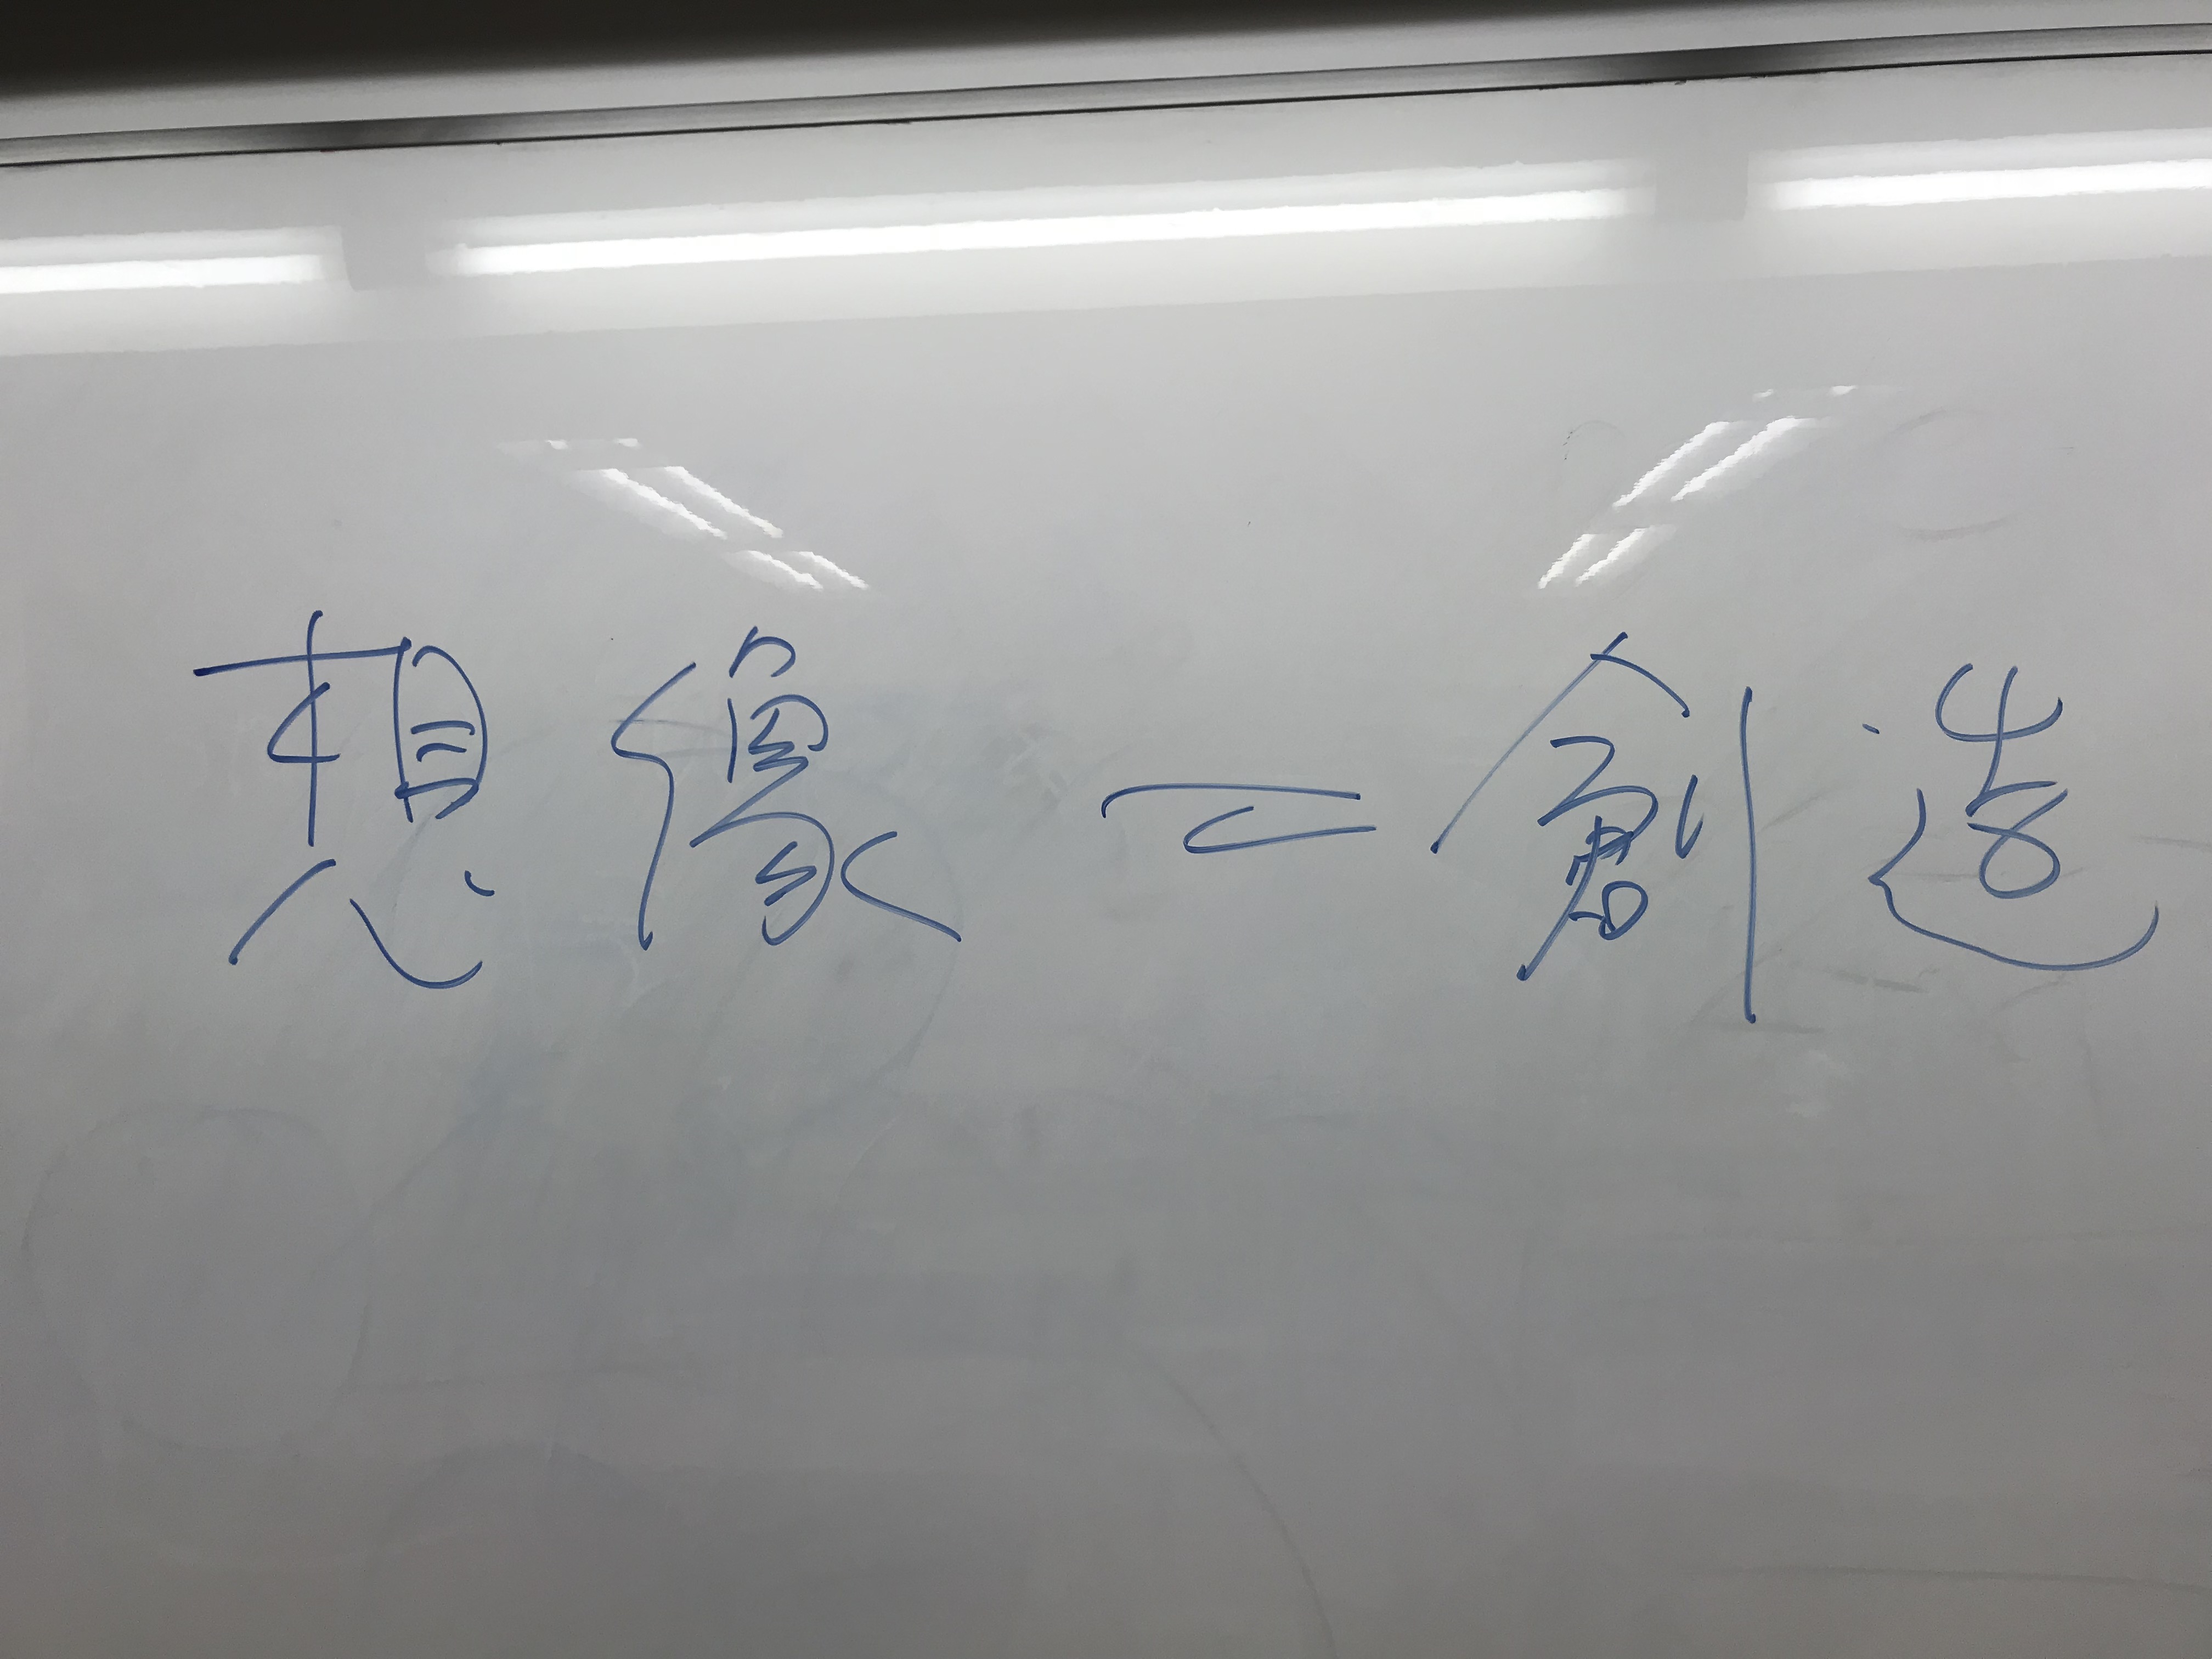 想像=創造